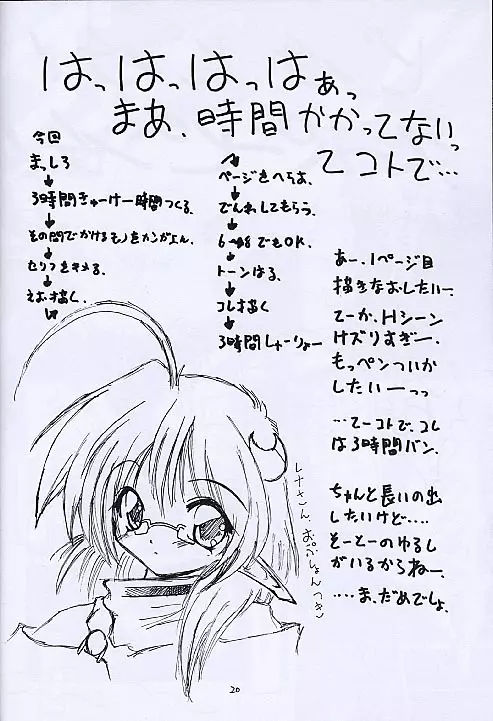 はっはっはっはぁっ
まあ、時間かかってないっ
てコトで…
今回
まっしろ
↓
3時間きゅーけー時間つくる。
↓
その間でかけるモノをカンがえん。
↓
せりフをきめる。
↓
えお描く。
ページをへらす。
↓
でんわしてもらう。
↓
6〜8でもOK。
↓
トーンはる。
↓
コレ描く
↓
3時間しゅーりょー
あー、1ページ目
描きなおしたいー、
てーか、Hシーン
ケズりすぎー、
もっぺンついか
したいーっっ
…てーコトで、コレ
は3時間バン。
ちゃんと長いの出
したいけど‥‥
そーとーのゆるし
がいるからねー、
‥‥ま、だめでしょ。
レナさん、おぷしょんつき
20